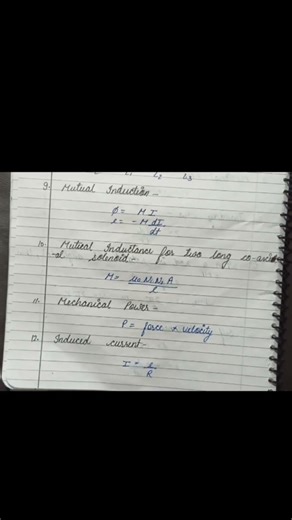 L2 L3
9. Mutual Induction -
φ = M I
e = - M dI
dt
10. Mutual Inductance for two long co-axi
-al solenoid -
M = μ₀ N₁ N₂ A
l
11. Mechanical Power -
P = force × velocity
12. Induced current -
I = e
R